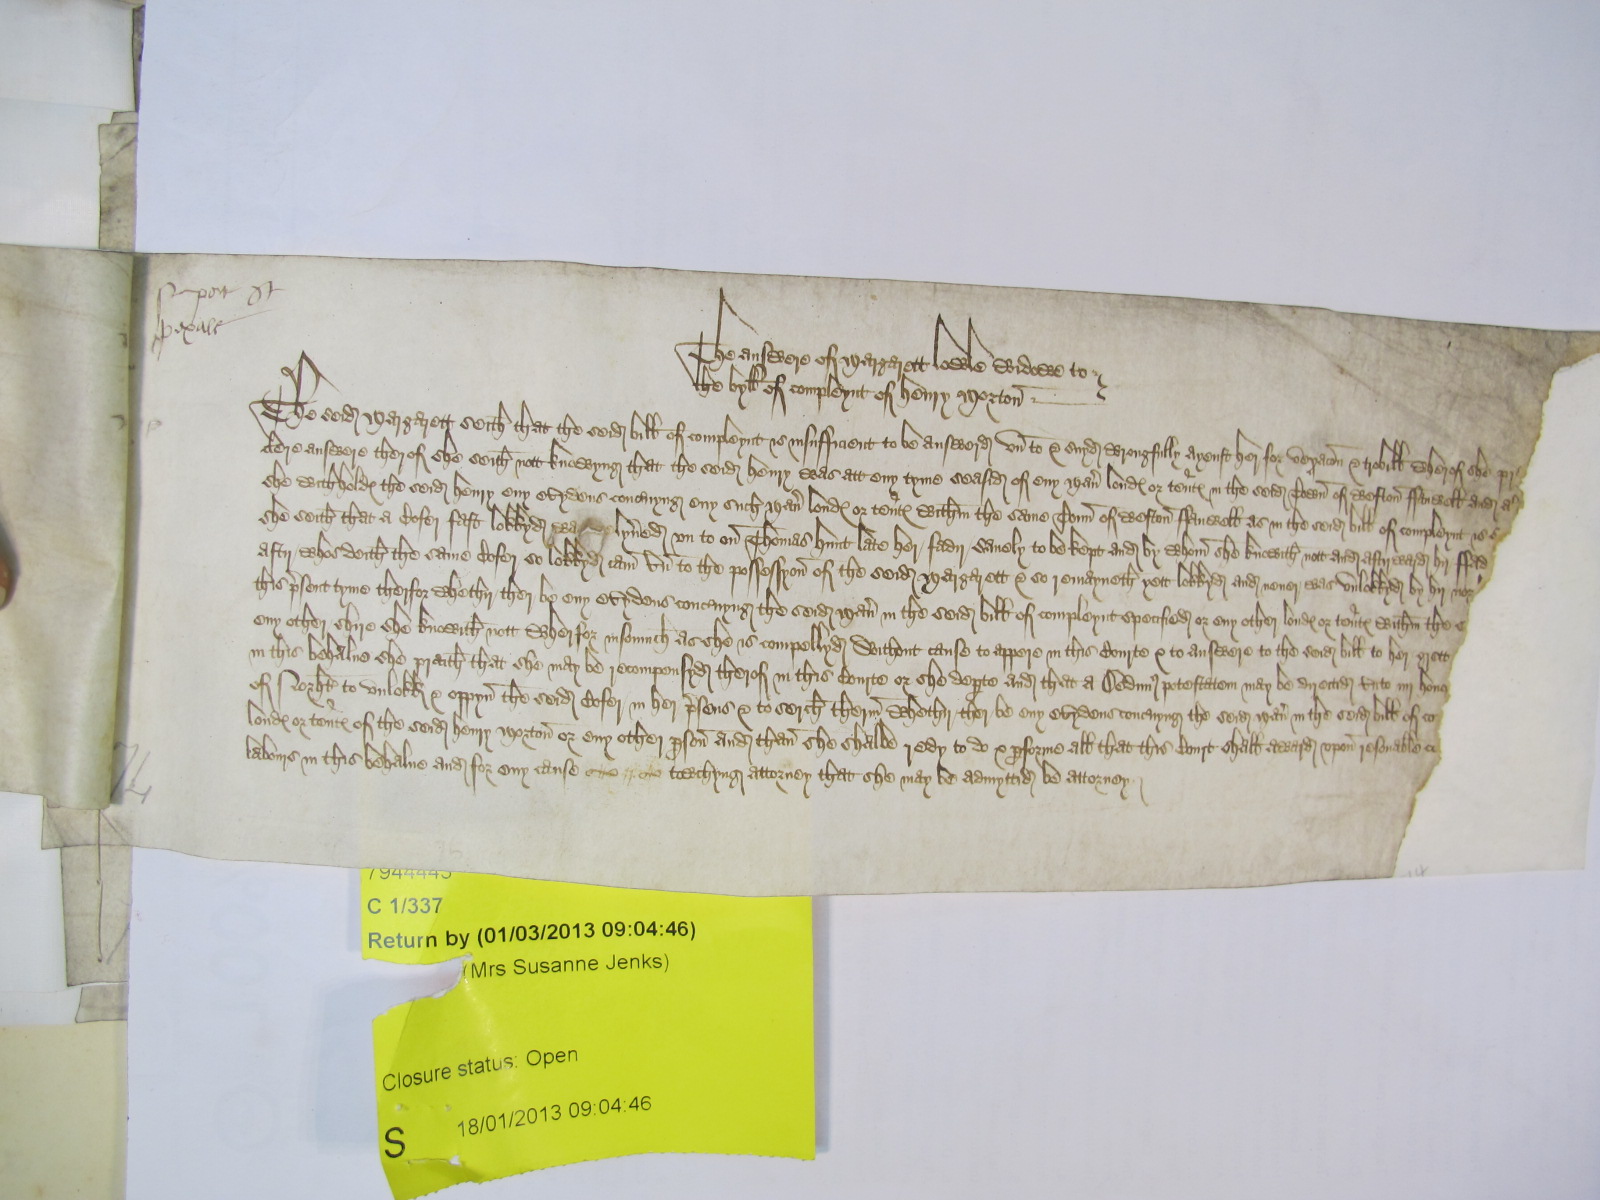 The answere of Margarett lowle Widowe to
the byll of compleynt of henry Morton
The seid Margarett seith that the seid bill of compleynt is insufficient to be answerd vn to & suyd wrongfully ayenst her for vexacon & trobill wherof she
answere therof she seith nott knowyng that the seid henry was att eny tyme seasid of eny man londes or tentes in the seid Town of Weston ffavell and
she witholdes the seid henry eny evydens concernyng eny such man londes or tentes within the same Toun of Weston ffavell as in the seid bill of compleynt is
she seith that a Cofer fast lokkyd was lyvered vn to on Thomas hunt late her fadir savely to be kept and by whom she knowith nott and aftirward hir
aftir whos deith the same Cofer so lokkyd cam vn to the possessyon of the seid Margarett & so remayneth yett lokkyd and never was vnlokkyd by hir nor
this present tyme therfor whethir ther be eny evydens concernyng the seid man in the seid bill of compleynt specified or eny other londes or tentes within the
eny other shire she knowith nott Wherfor insomuch as she is compellyd without cause to appere in this Courte & to answere to the seid bill to her grett
in this behalve she praith that she may be recompensyd therof in this Courte or she departe and that a Dedimus potestatem may be directid vnto
of to vnlokk & oppyn the seid Cofer in her presens & to serch therin Whethir ther be eny evydens concernyng the seid man in the seid bill of
londes or tentes of the seid henry Morton or eny other person and than she shalbe redy to do & performe all that this Court shall award vpon resonable
labours in this behalve and for eny cause towchyng attorney that she may be admyttid be attorney
74
7944445
C 1/337
Return by (01/03/2013 09:04:46)
(Mrs Susanne Jenks)
Closure status: Open
18/01/2013 09:04:46
S